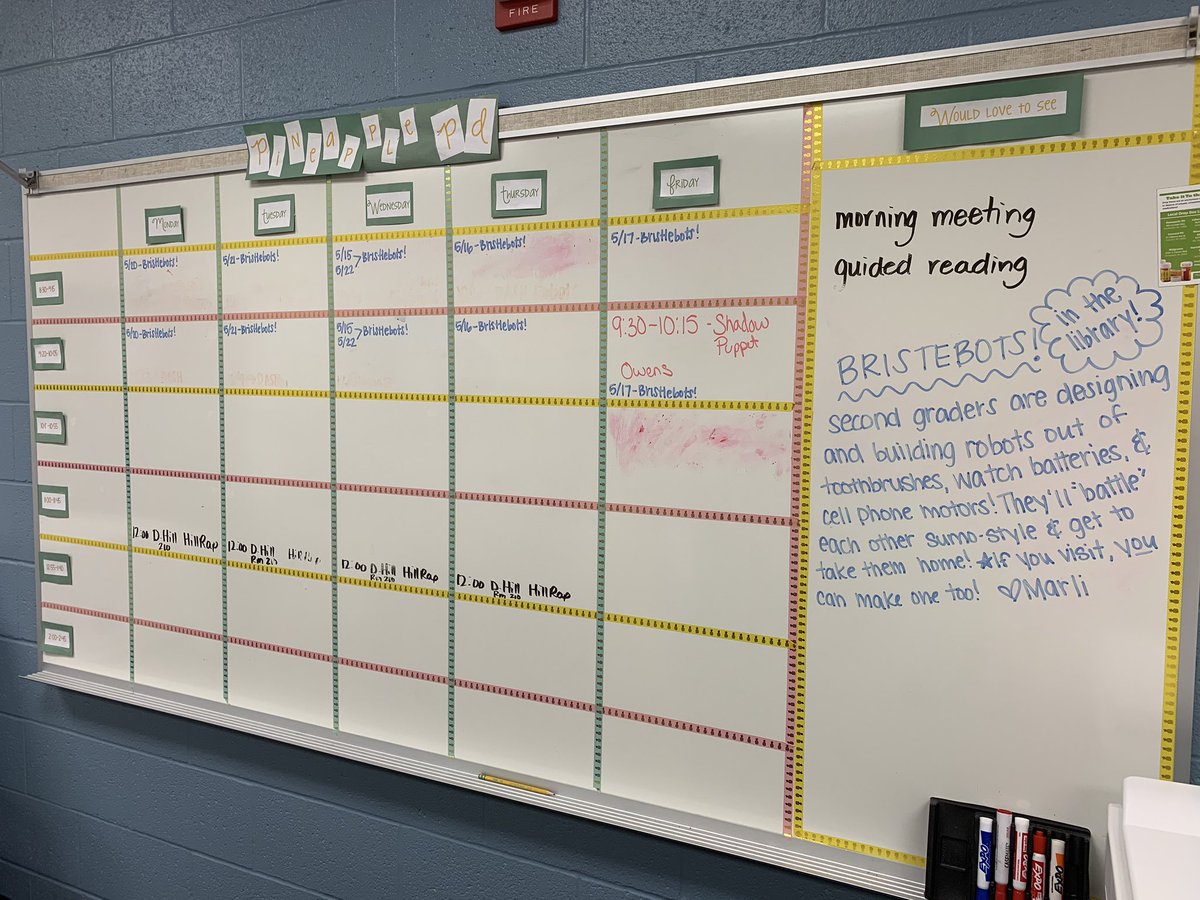 FIRE
PiNeApple pd
Would love to see
Monday
Tuesday
Wednesday
Thursday
Friday
5/20-Bristlebots!
5/21-Bristlebots!
5/15
5/22 Bristlebots!
5/16-Bristlebots!
5/17-Bristlebots!
5/20-Bristlebots!
5/21-Bristlebots!
5/15
5/22 Bristlebots!
5/16-Bristlebots!
9:30-10:15 -Shadow
Puppet
Owens
5/17-Bristlebots!
11:00-11:45
2:00-2:45
12:00 D.Hill HillRap
210
12:00 D.Hill HillRap
Rm 210
12:00 D.Hill HillRap
Rm 210
12:00 D.Hill HillRap
Rm 210
morning meeting
guided reading
BRISTEBOTS!
in the
library!
second graders are designing
and building robots out of
toothbrushes, watch batteries, &
cell phone motors! They'll "battle"
each other sumo-style & get to
take them home! *If you visit, you
can make one too! ♡Marli
EXPO
EXPO
EXPO